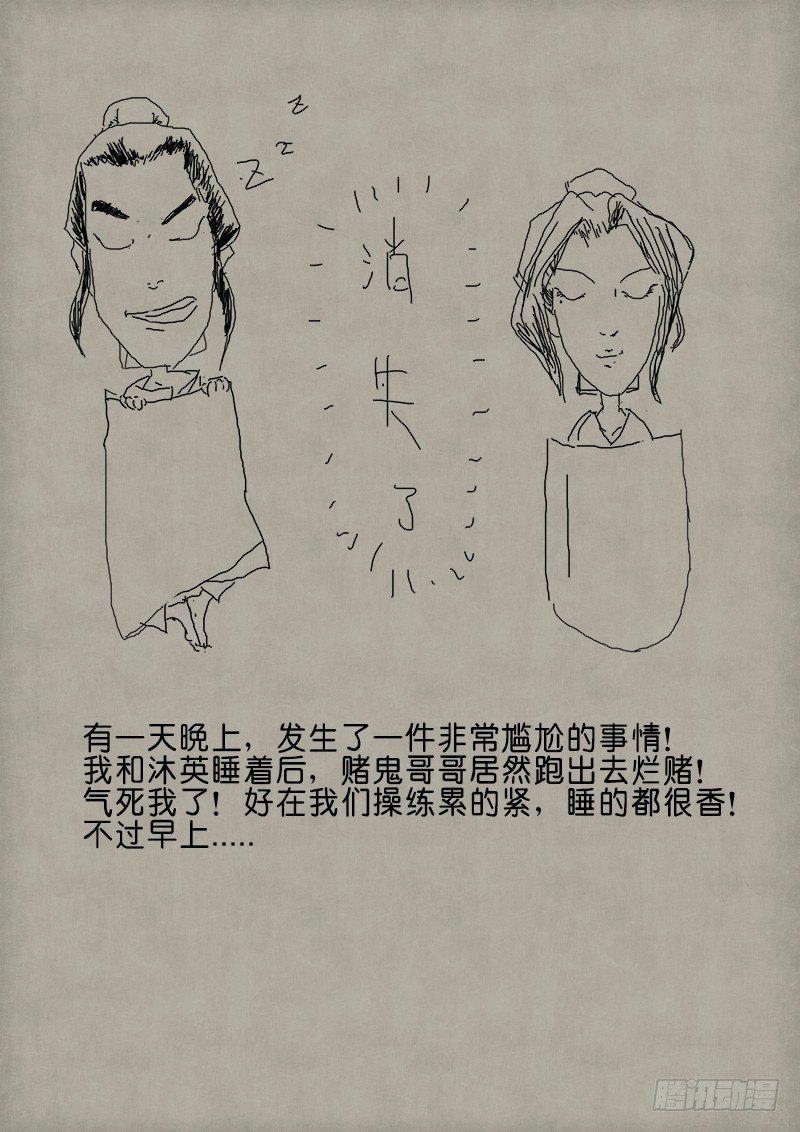 z
z
Z
消
失
了
有一天晚上，发生了一件非常尴尬的事情！
我和沐英睡着后，赌鬼哥哥居然跑出去烂赌！
气死我了！好在我们操练累的紧，睡的都很香！
不过早上.....
腾讯动漫